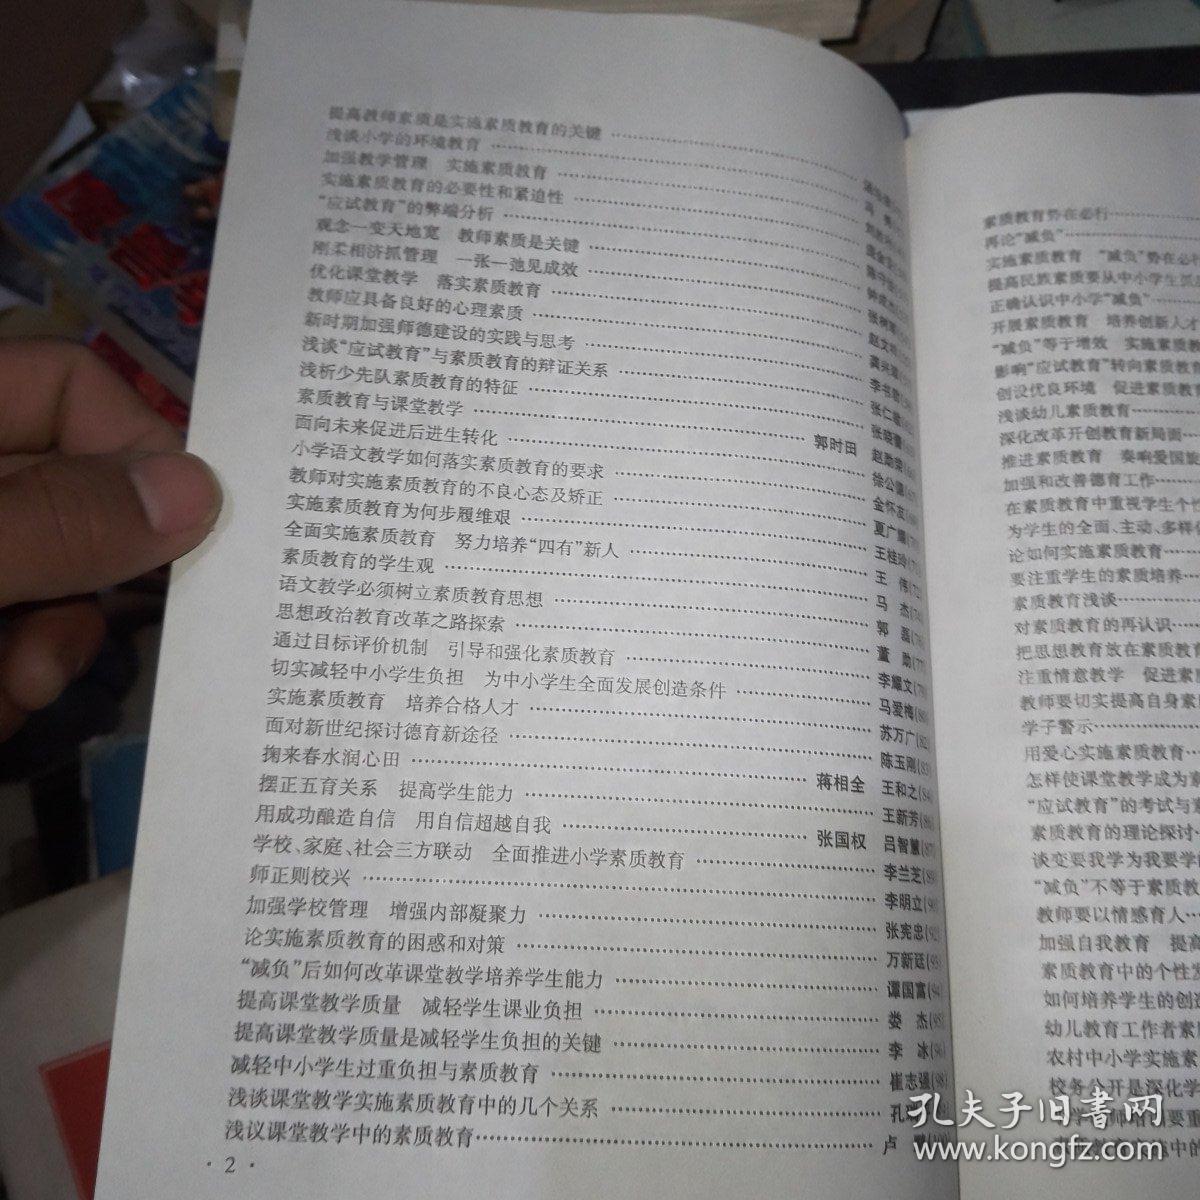 提高教师素质是实施素质教育的关键
浅谈小学的环境教育
加强教学管理　实施素质教育
实施素质教育的必要性和紧迫性
“应试教育”的弊端分析
观念一变天地宽　教师素质是关键
刚柔相济抓管理　一张一弛见成效
优化课堂教学　落实素质教育
教师应具备良好的心理素质
新时期加强师德建设的实践与思考
浅谈“应试教育”与素质教育的辩证关系
浅析少先队素质教育的特征
素质教育与课堂教学 郭时田
面向未来促进后进生转化
小学语文教学如何落实素质教育的要求
教师对实施素质教育的不良心态及矫正
实施素质教育为何步履维艰
全面实施素质教育　努力培养“四有”新人 王　伟(72)
素质教育的学生观 马　杰(74)
语文教学必须树立素质教育思想 郭　磊(76)
思想政治教育改革之路探索 董　勋(77)
通过目标评价机制　引导和强化素质教育 李耀文(79)
切实减轻中小学生负担　为中小学生全面发展创造条件 马爱梅(80)
实施素质教育　培养合格人才 苏万广(82)
面对新世纪探讨德育新途径 陈玉刚(83)
掬来春水润心田 蒋相全　王和之(84)
摆正五育关系　提高学生能力 王新芳(86)
用成功酿造自信　用自信超越自我 张国权　吕智慧(87)
学校、家庭、社会三方联动　全面推进小学素质教育 李兰芝(89)
师正则校兴 李明立(90)
加强学校管理　增强内部凝聚力 张宪忠(92)
论实施素质教育的困惑和对策 万新廷(93)
“减负”后如何改革课堂教学培养学生能力 谭国富(94)
提高课堂教学质量　减轻学生课业负担 娄　杰(95)
提高课堂教学质量是减轻学生负担的关键 李　冰(96)
减轻中小学生过重负担与素质教育 崔志强(98)
浅谈课堂教学实施素质教育中的几个关系
浅议课堂教学中的素质教育
· 2 ·
素质教育势在必行
再论“减负”
实施素质教育　“减负”势在必行
提高民族素质要从中小学生抓
正确认识中小学“减负”
开展素质教育　培养创新人才
“减负”等于增效　实施素质教
影响“应试教育”转向素质教育
创设优良环境　促进素质教
浅谈幼儿素质教育
深化改革开创教育新局面
推进素质教育　奏响爱国旋
加强和改善德育工作
在素质教育中重视学生个性
为学生的全面、主动、多样
论如何实施素质教育
要注重学生的素质培养
素质教育浅谈
对素质教育的再认识
把思想教育放在素质教育
注重情意教学　促进素质
教师要切实提高自身素
学子警示
用爱心实施素质教育
怎样使课堂教学成为素
“应试教育”的考试与素
素质教育的理论探讨
谈变要我学为我要学的
“减负”不等于素质教
教师要以情感育人
加强自我教育　提高
素质教育中的个性发
如何培养学生的创造
幼儿教育工作者素
农村中小学实施素
校务公开是深化学
孔夫子旧书网
www.kongfz.com